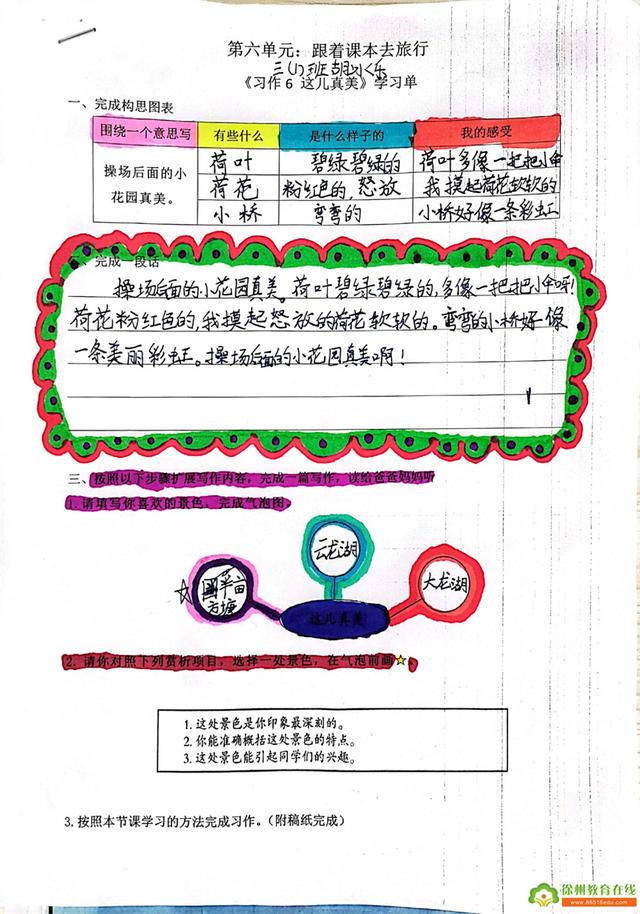 第六单元：跟着课本去旅行
三(1)班
《习作6 这儿真美》学习单
一、完成构思图表
围绕一个意思写 有些什么 是什么样子的 我的感受
操场后面的小花园真美。 荷叶 碧绿碧绿的 荷叶多像一把把小伞
荷花 粉红色的，怒放 我摸起荷花软软的
小桥 弯弯的 小桥好像一条彩虹
完成一段话
操场后面的小花园真美。荷叶碧绿碧绿的，多像一把把小伞呀！
荷花粉红色的，我摸起怒放的荷花软软的。弯弯的小桥好像
一条美丽彩虹。操场后面的小花园真美啊！
三、按照以下步骤扩展写作内容，完成一篇写作，读给爸爸妈妈听
1.请填写你喜欢的景色，完成气泡图。
云龙湖
方塘
大龙湖
这儿真美
2.请你对照下列赏析项目，选择一处景色，在气泡前画☆。
1.这处景色是你印象最深刻的。
2.你能准确概括这处景色的特点。
3.这处景色能引起同学们的兴趣。
3.按照本节课学习的方法完成习作。（附稿纸完成）
徐州教育在线
www.86516edu.com